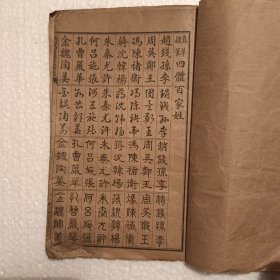 真草隸篆四體百家姓
趙錢孫李趙錢孫李趙錢孫李趙錢孫李
周吳鄭王周吳鄭王周吳鄭王周吳鄭王
馮陳褚衛馮陳褚衛馮陳褚衛馮陳褚衛
蔣沈韓楊蔣沈韓楊蔣沈韓楊蔣沈韓楊
朱秦尤許朱秦尤許朱秦尤許朱秦尤許
何呂施張何呂施張何呂施張何呂施張
孔曹嚴華孔曹嚴華孔曹嚴華孔曹嚴華
金魏陶姜金魏陶姜金魏陶姜金魏陶姜